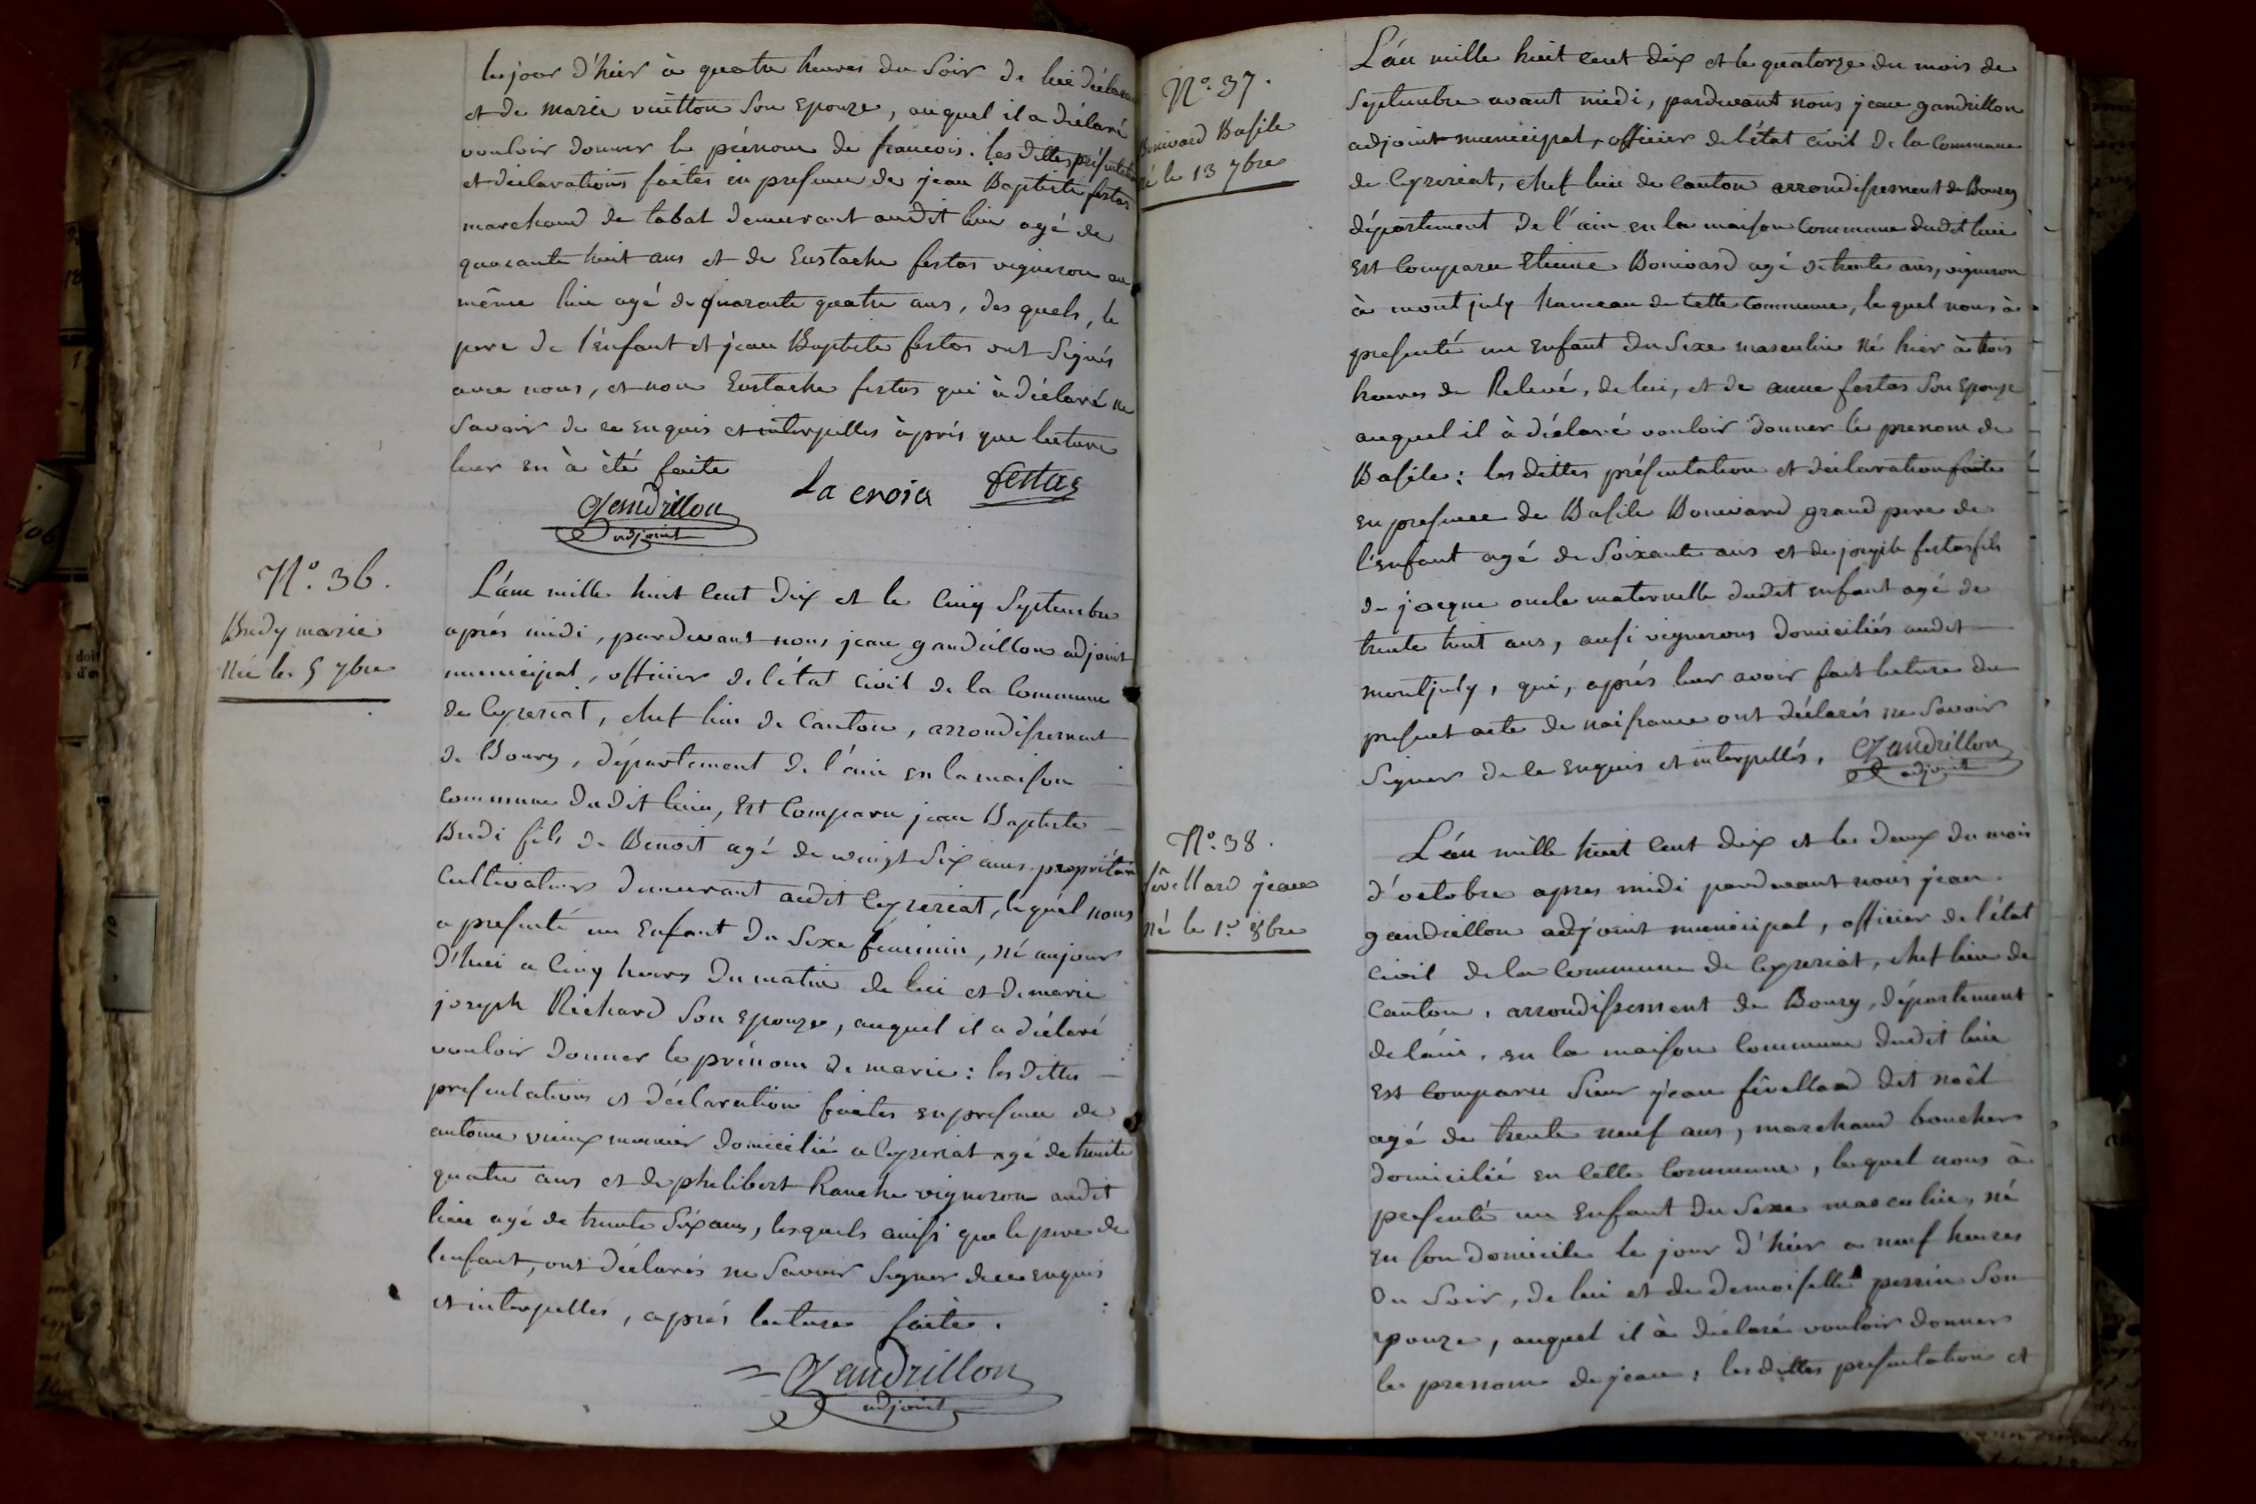 le jour d'hier à quatre heures du soir de lui déclarant
et de marie vuitton son epouze, auquel il a déclaré
vouloir donner le prénom de francois. les dittes présentation
et déclarations faites en presence de jean Baptiste festas
marchand de tabat demeurant audit lieu agé de
quarante huit ans et de Eustache festas vigneron au
même lieu agé de quarante quatre ans, des quels, le
pere de l'enfant et jean Baptiste festas ont signés
avec nous, et non Eustache festas qui à déclaré ne
savoir de ce enquis et interpellés après que lecture
leur en à été faite
Gandrillon
adjoint
La croix
festas
N.o 36.
Budy marie
née le 5 7bre
L'an mille huit cent dix et le cinq septembre
après midi, pardevant nous jean gandrillon adjoint
municipal, officier de l'état civil de la commune
de Ceyzeriat, chef lieu de canton, arrondissement
de Bourg, département de l'ain en la maison
commune dudit lieu, Est comparu jean Baptiste
Budi fils de Benoit agé de vingt six ans proprietaire
cultivateur demeurant audit Ceyzeriat, lequel nous
a presenté un Enfant du sexe féminin, né aujour
d'hui a cinq heures du matin de lui et de marie
joseph Richard son epouze, auquel il a déclaré
vouloir donner le prénom de marie : les dittes
presentations et déclaration faites en presence de
antoine vieux meunier domicilié a Ceyzeriat agé de trente
quatre ans et de philibert vigneron audit
lieu agé de trente six ans, lesquels ainsi que le pere de
lenfant, ont déclarés ne savoir signer de ce enquis
et interpellés, après lecture faite.
Gandrillon
adjoint
N.o 37.
Bonivard Basile
né le 13 7bre
L'an mille huit cent dix et le quatorze du mois de
septembre avant midi, pardevant nous jean gandrillon
adjoint municipal, officier de l'état civil de la commune
de Ceyzeriat, chef lieu de canton arrondissement de Bourg
département de l'ain en la maison commune dudit lieu
Est comparu Etienne Bonivard agé de trente ans, vigneron
à montjuly hameau de cette commune, le quel nous à
presenté un enfant du sexe masculin né hier à trois
heures de Relevé, de lui, et de anne festas son epouze
auquel il à déclaré vouloir donner le prenom de
Basile : les dittes présentation et déclaration faite
en presence de Basile Bonivard grand pere de
l'enfant agé de soixante ans et de joseph festas fils
de jacque oncle maternelle dudit enfant agé de
trente huit ans, aussi vignerons domiciliés audit
montjuly, qui, après leur avoir fait lecture du
present acte de naissance ont déclarés ne savoir
signer de ce enquis et interpellés,
Gandrillon
adjoint
N.o 38.
févellard jean
né le 1.er 8bre
L'an mille huit cent dix et le deux du mois
d'octobre apres midi pardevant nous jean
gandrillon adjoint municipal, officier de l'état
civil de la commune de Ceyzeriat, chef lieu de
canton, arrondissement de Bourg, département
de l'ain, en la maison commune dudit lieu
est comparu sieur jean févellard dit noël
agé de trente neuf ans, marchand boucher
domicilié en cette commune, lequel nous à
presenté un enfant du sexe masculin, né
en son domicile le jour d'hier a neuf heures
du soir, de lui et de demoiselle perrin son
epouze, auquel il à déclaré vouloir donner
le prenom de jean, les dittes presentation et